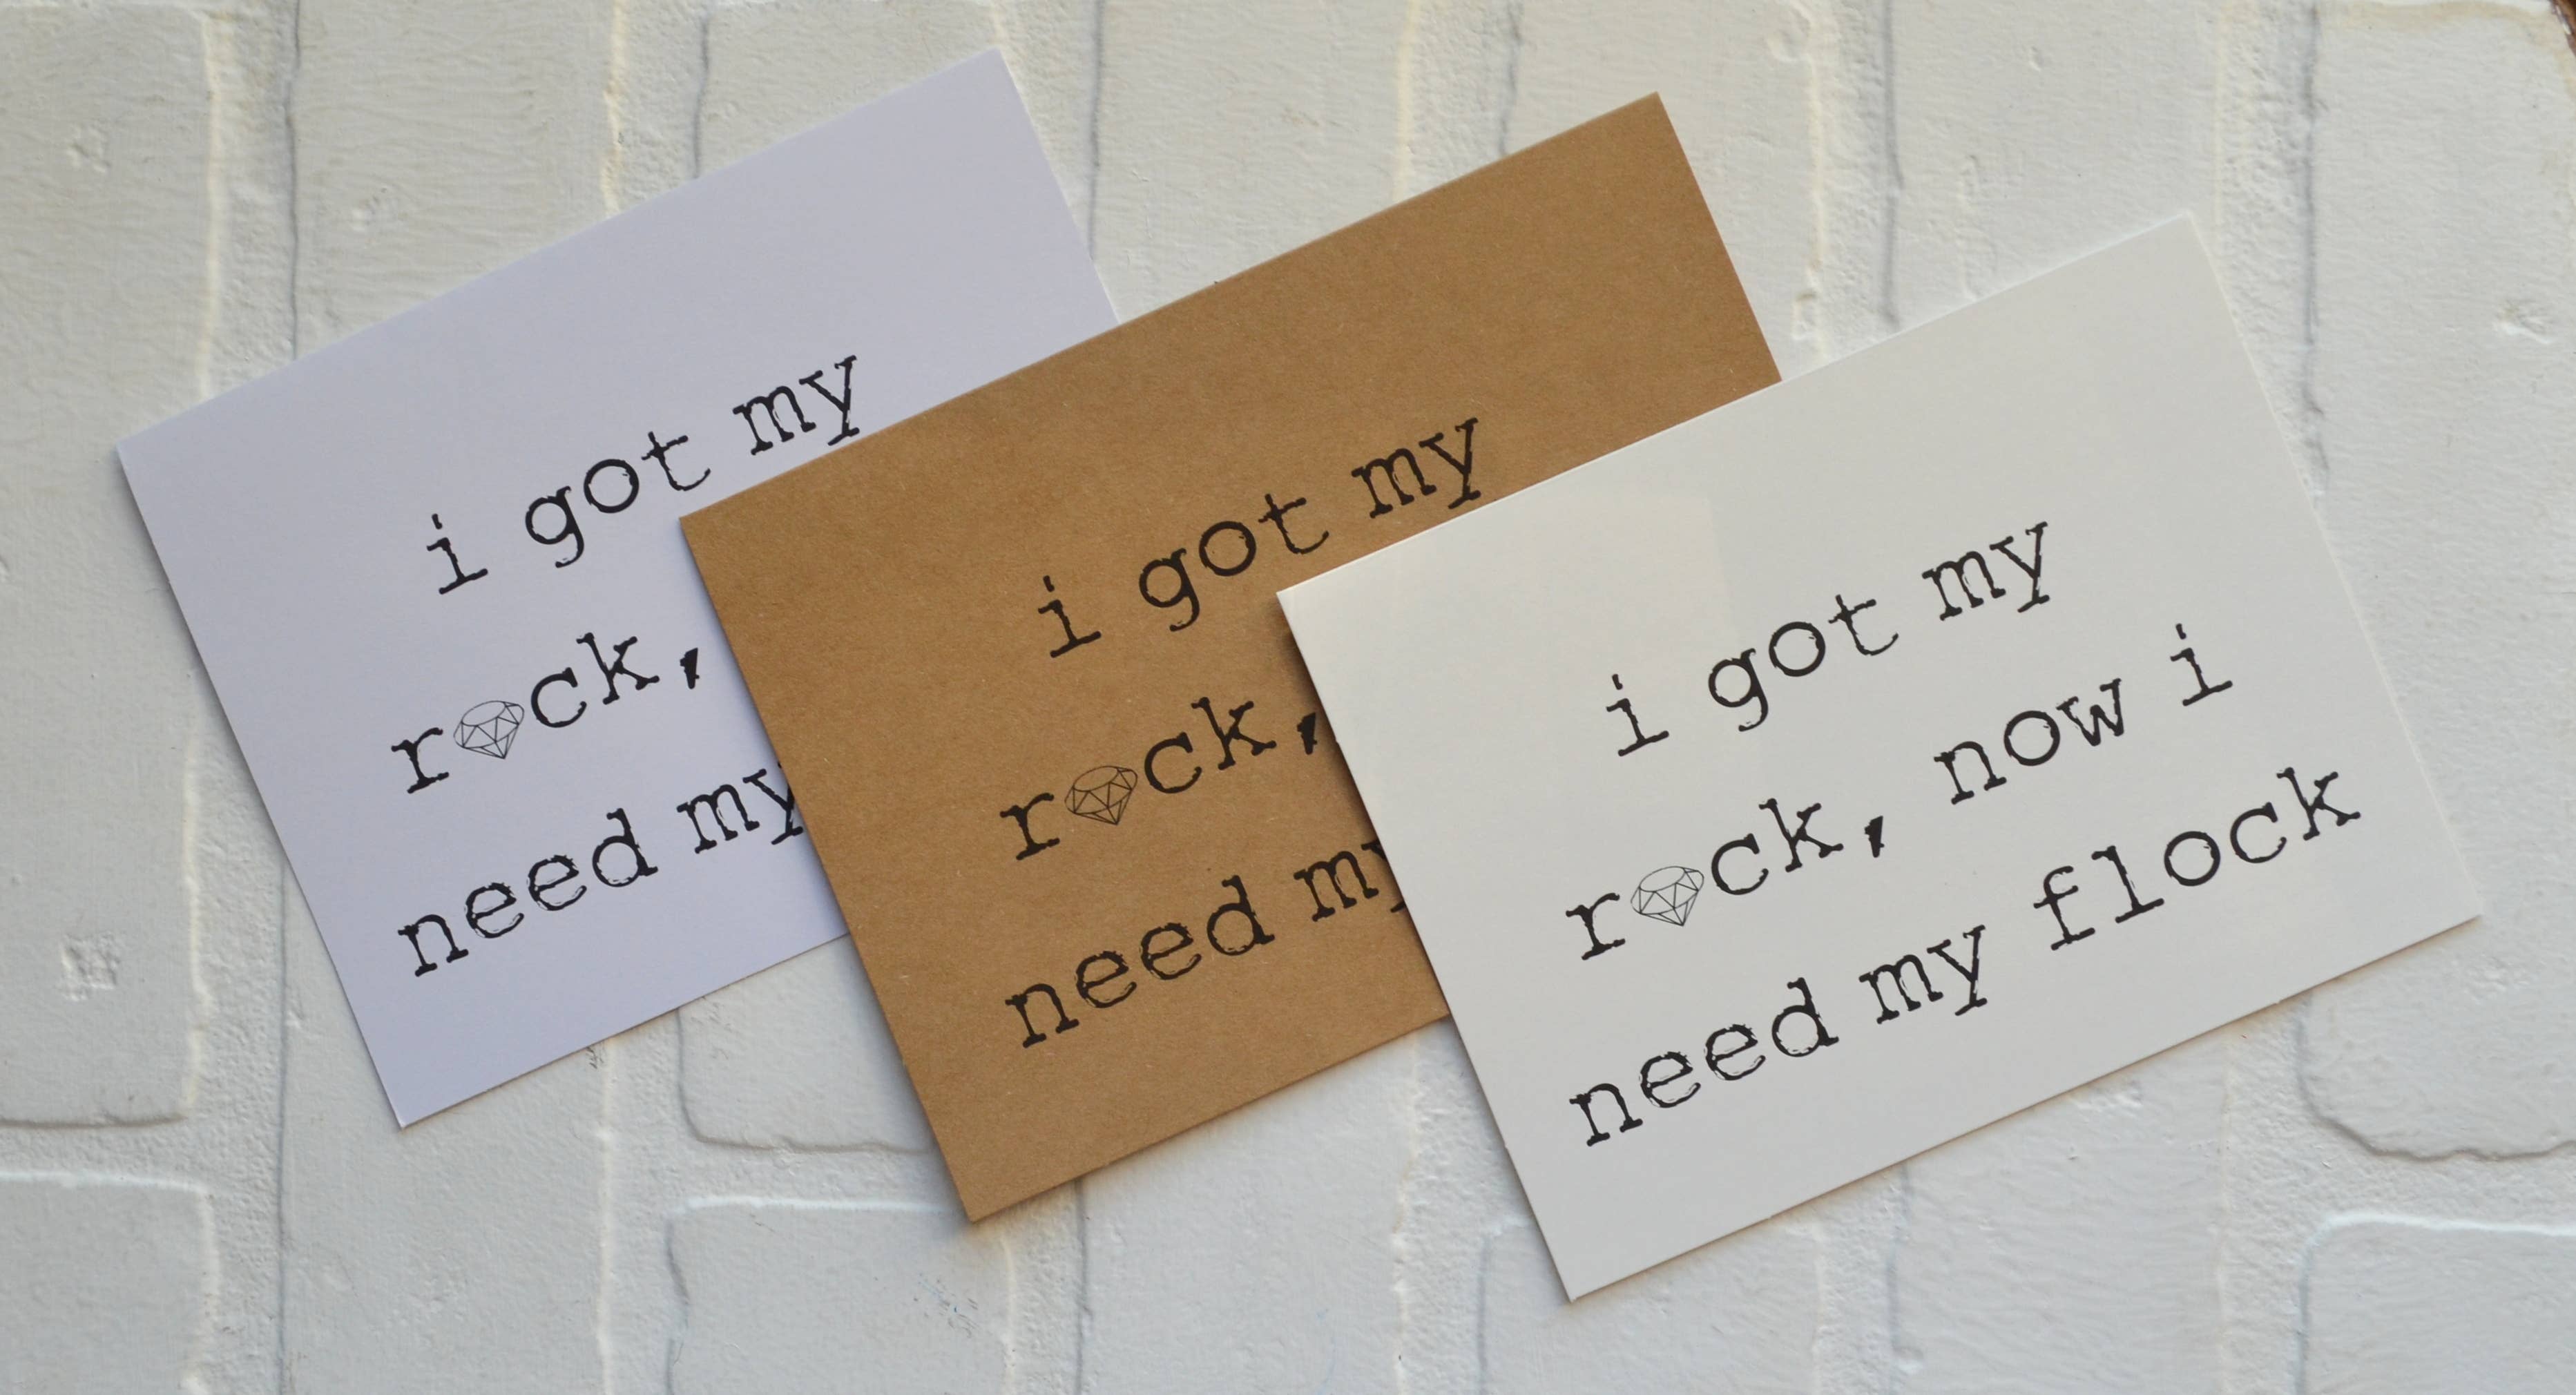 i got my
rock,
need my
i got my
rock,
need my
i got my
rock, now i
need my flock